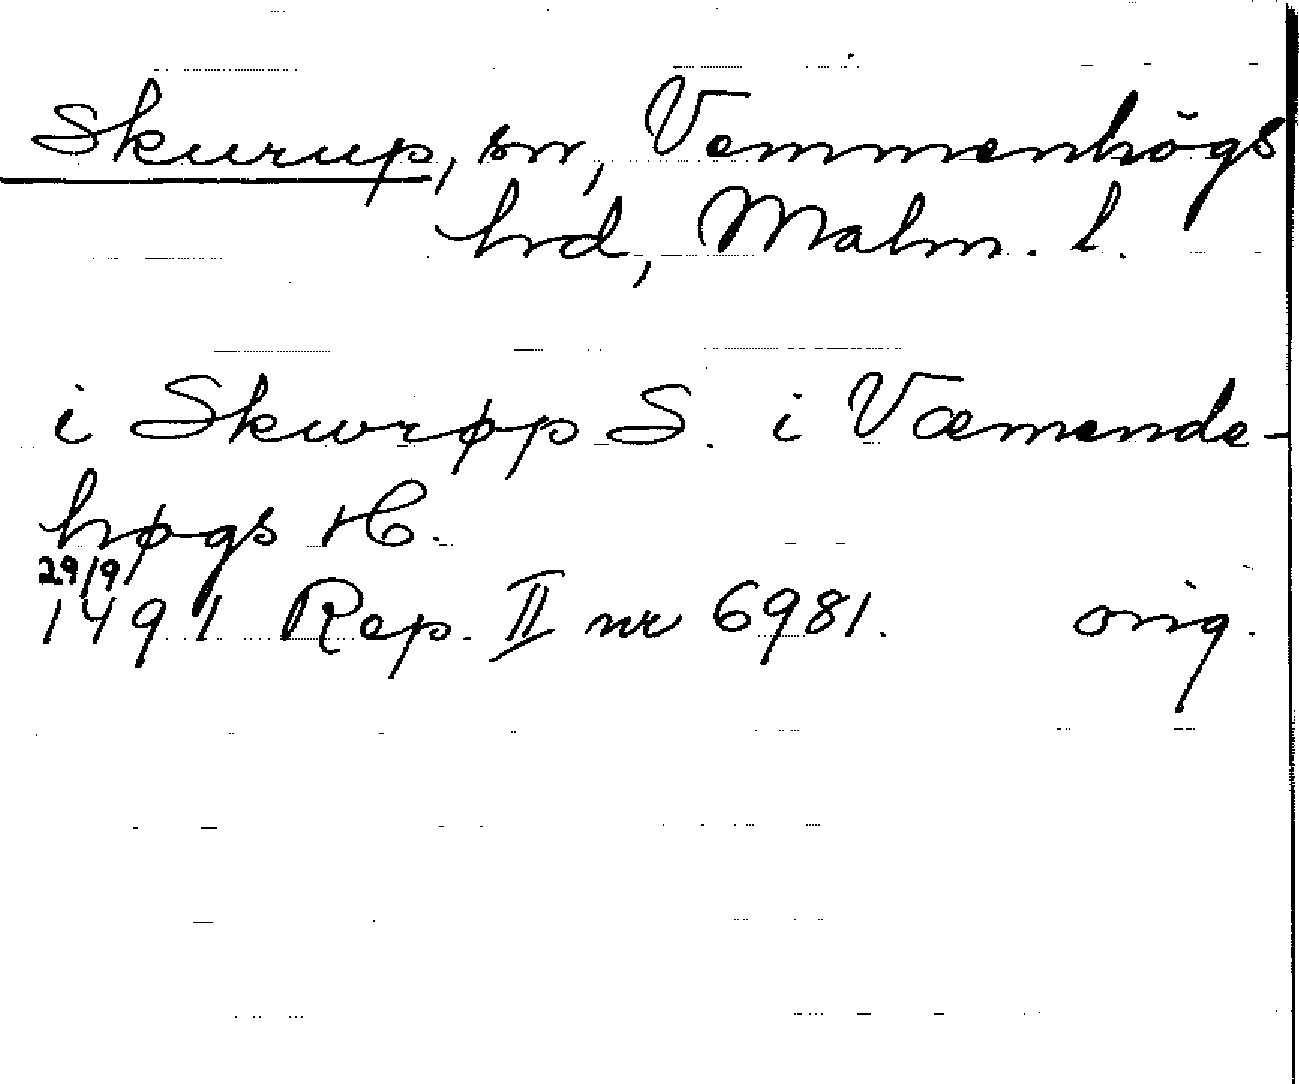 Skurup, sn, Vemmenhögs
hrd, Malm. l.
i Skwrøp S. i Væmende-
høgs H.
29/9
1491 Rep. II nr 6981. orig.